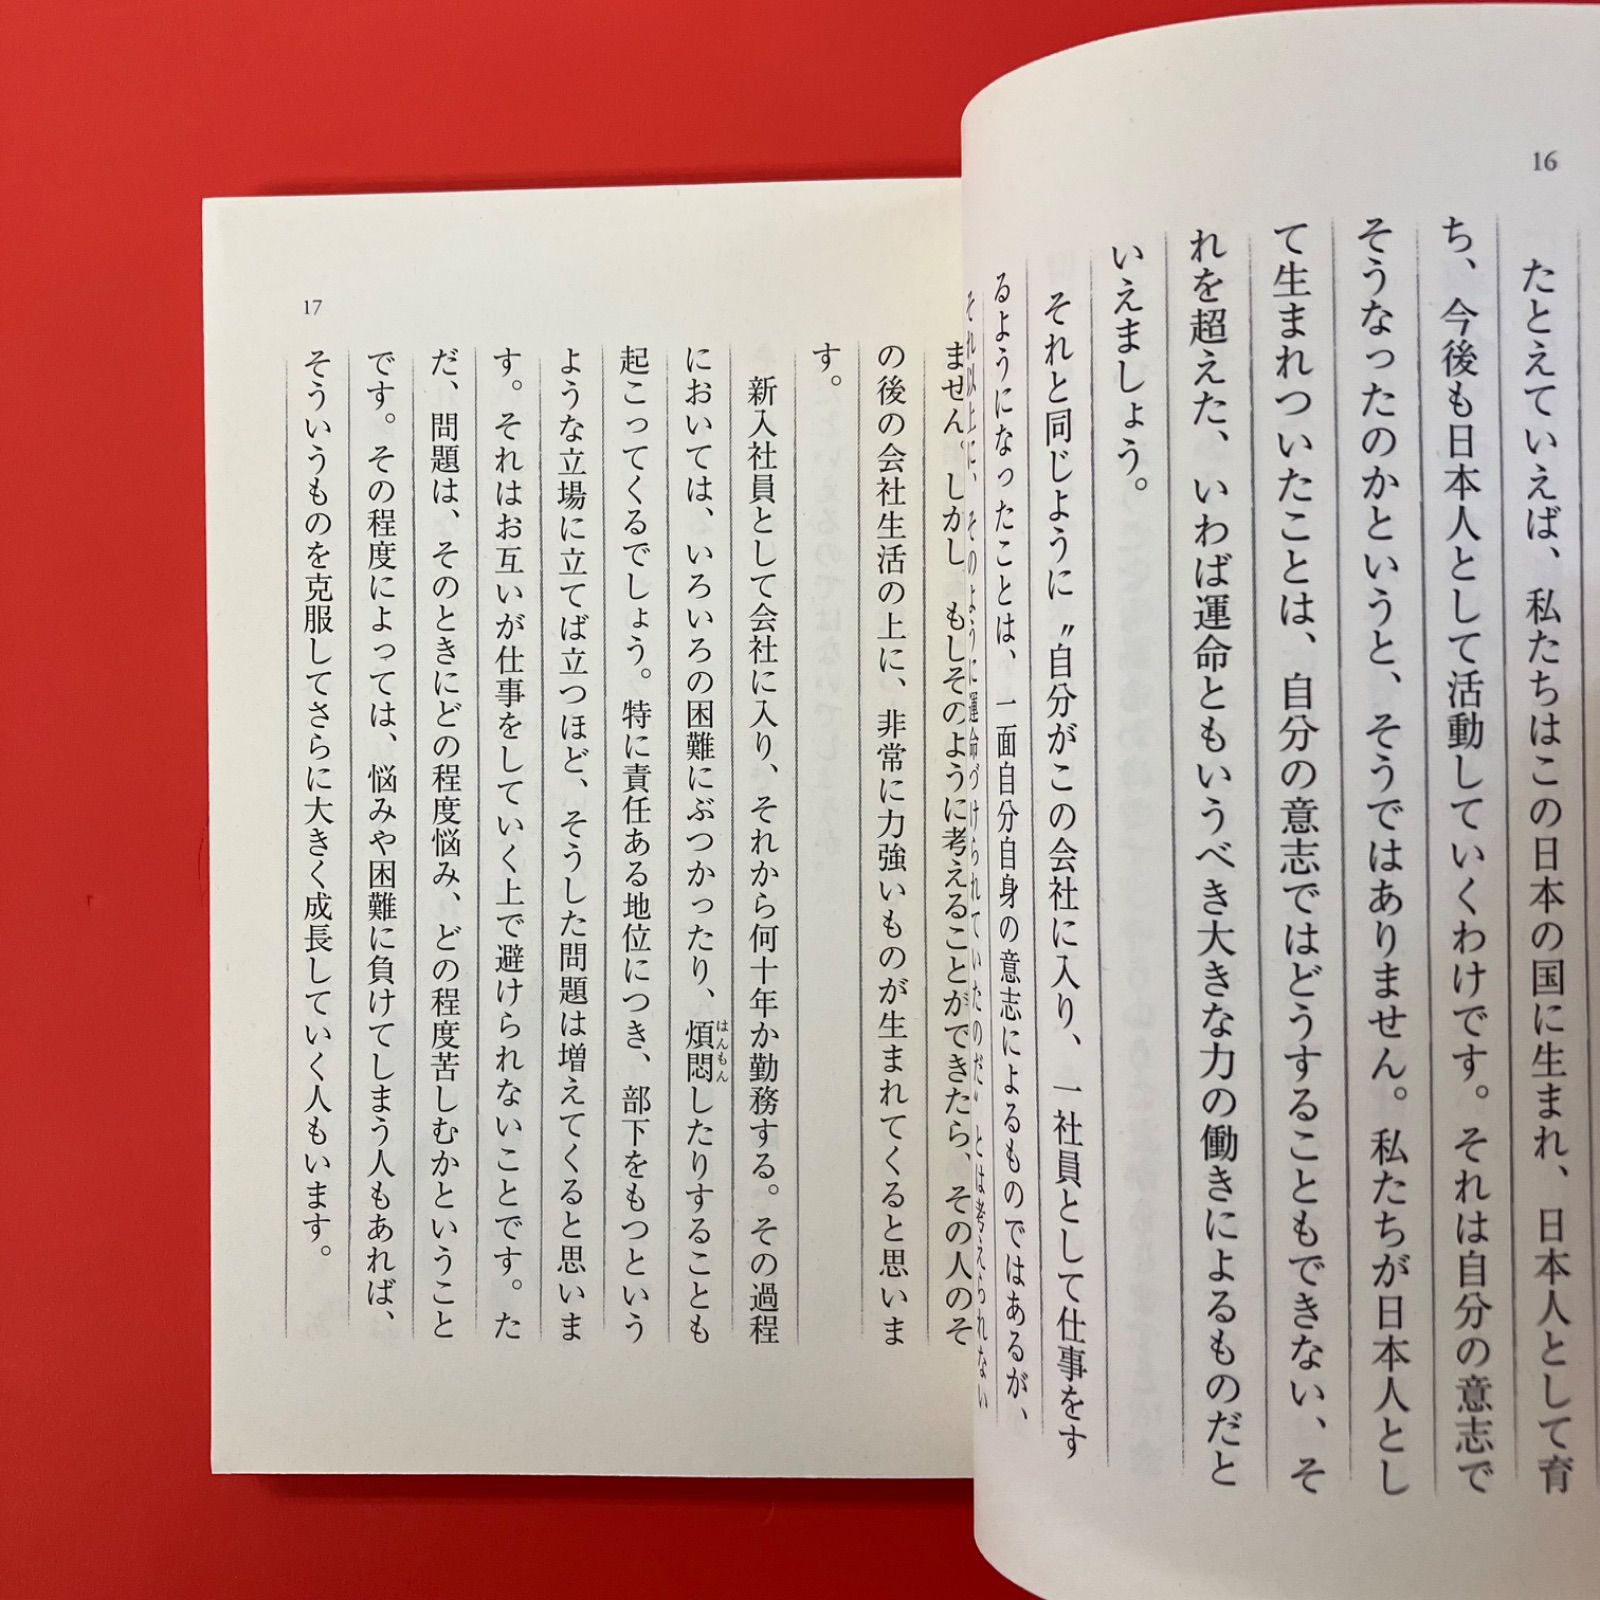 16
たとえていえば、私たちはこの日本の国に生まれ、日本人として育
ち、今後も日本人として活動していくわけです。それは自分の意志で
そうなったのかというと、そうではありません。私たちが日本人とし
て生まれついたことは、自分の意志ではどうすることもできない、そ
れを超えた、いわば運命ともいうべき大きな力の働きによるものだと
いえましょう。
それと同じように〝自分がこの会社に入り、一社員として仕事をす
るようになったことは、一面自分自身の意志によるものではあるが、
それ以上に、そのように運命づけられていたのだ〟とは考えられない
ません。しかし、もしそのように考えることができたら、その人のそ
の後の会社生活の上に、非常に力強いものが生まれてくると思いま
す。
新入社員として会社に入り、それから何十年か勤務する。その過程
においては、いろいろの困難にぶつかったり、煩悶はんもんしたりすることも
起こってくるでしょう。特に責任ある地位につき、部下をもつという
ような立場に立てば立つほど、そうした問題は増えてくると思いま
す。それはお互いが仕事をしていく上で避けられないことです。た
だ、問題は、そのときにどの程度悩み、どの程度苦しむかということ
です。その程度によっては、悩みや困難に負けてしまう人もあれば、
そういうものを克服してさらに大きく成長していく人もいます。
17